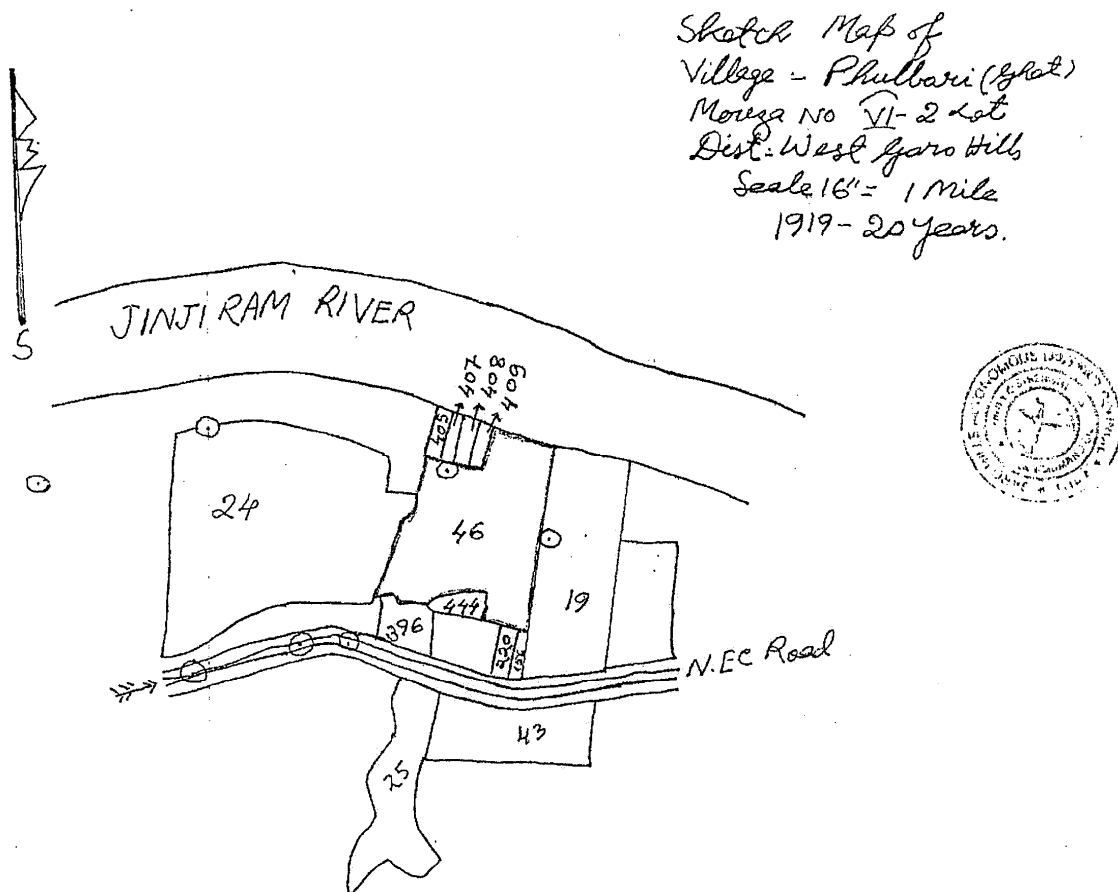 Sketch Map of
Village - Phulbari (Ghat)
Mouza No VI-2 Lot
Dist: West Garo Hills
Scale 16"= 1 Mile
1919-20 years.
S
JINJIRAM RIVER
405
407
408
409
24
46
19
444
396
220
N.EC Road
43
25